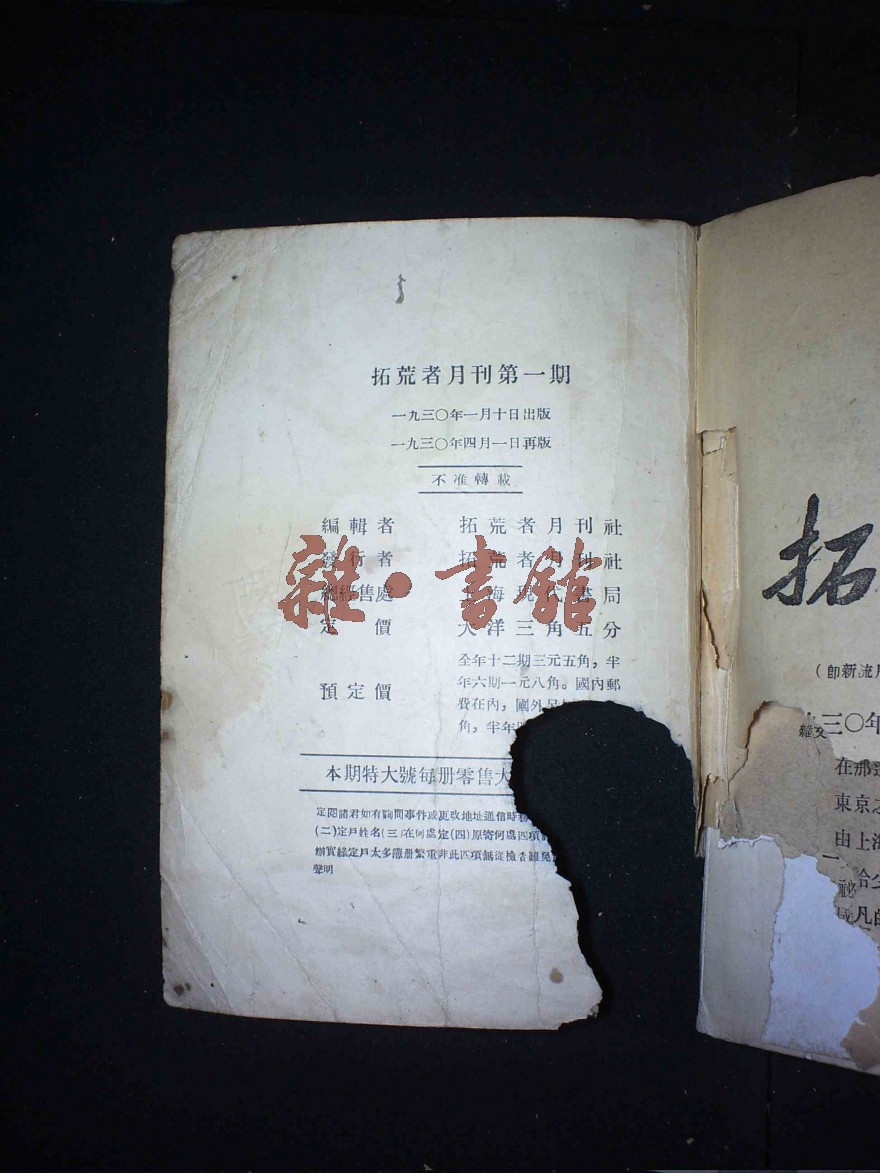 拓荒者月刊第一期
一九三〇年一月十日出版
一九三〇年四月一日再版
不准轉載
編輯者 拓荒者月刊社
發行者 拓荒者月刊社
總經售處 上海現代書局
定價 大洋三角五分
預定價 全年十二期三元五角，半
年六期一元八角。國內郵
費在內，國外另
角，半年
本期特大號每册零售大
定閱諸君如有詢問事件或更改地址通信時
(二)定戶姓名(三)在何處定(四)原寄何處四項
辦實緣定戶太多簿册繁重非此四項無從檢查
聲明
雜·書館
拓
(即新流
三〇年
在那
東京
由上海